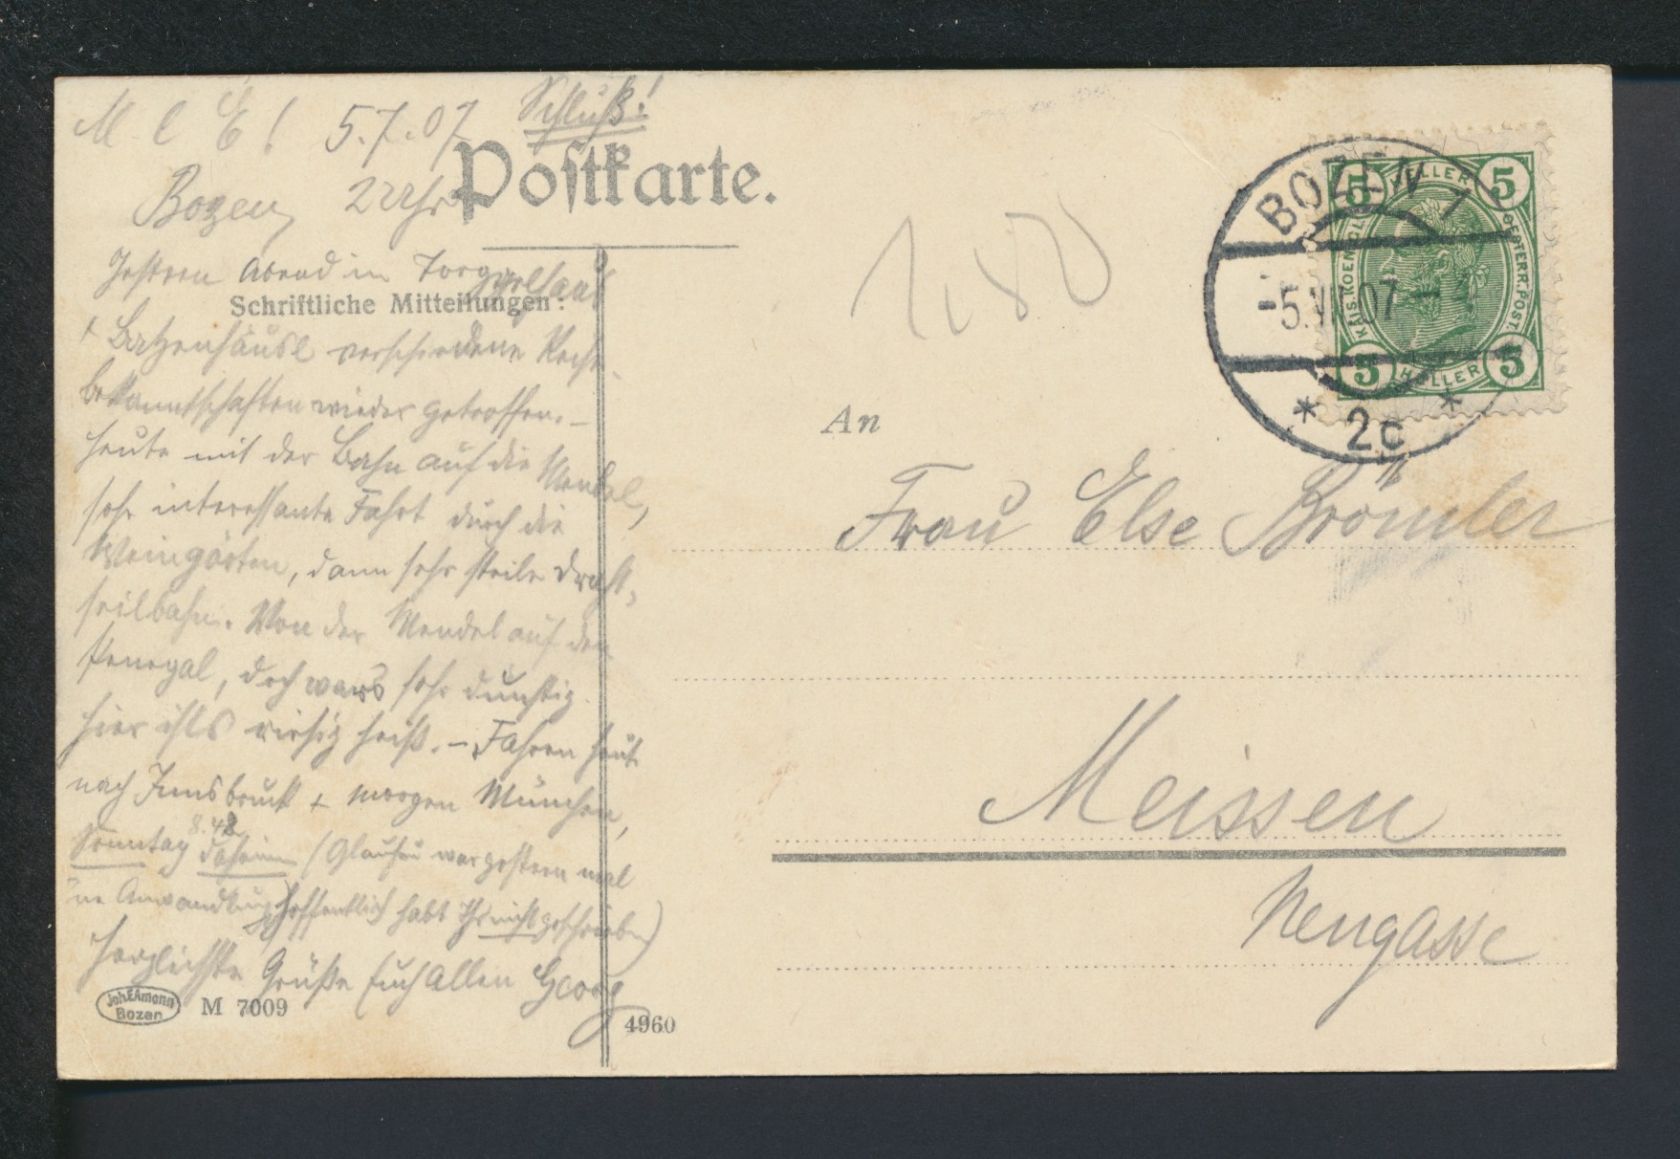 M. l. E! 5.7.07 Schluß!
Bozen, 2 Uhr
Postkarte.
Gestern Abend im Torgglhaus
Schriftliche Mitteilungen:
+ Batzenhäusl verschiedene Reise-
bekanntschaften wieder getroffen. –
Heute mit der Bahn auf die Mendel,
sehr interessante Fahrt durch die
Weingärten, dann sehr steile Draht-
seilbahn. Von der Mendel auf den
Penegal, doch wars sehr dunstig.
Hier ists riesig heiß. – Fahren heut
nach Innsbruck + morgen München,
Sonntag 8.48 daheim (Glaufau war gestern mal
'ne Anwandlung, hoffentlich habt Ihr nicht geschrieben)
Herzlichste Grüße Euch Allen Georg
Joh. F. Amonn
Bozen
M 7009
4960
BOZEN 1
-5.VII.07-
* 2c *
5 HELLER 5
KAIS. KOENIGL. OESTERR. POST.
5 HELLER 5
1,80
An
Frau Else Brömler
Meissen
Neugasse